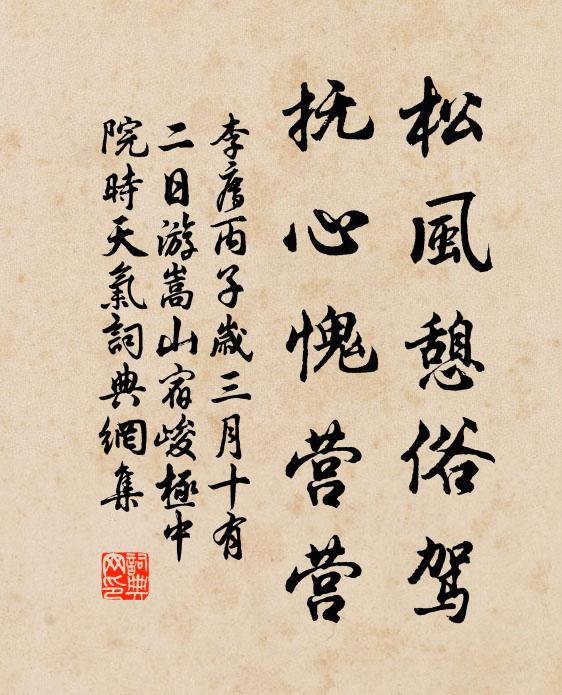 松風憩俗驾
抚心愧营营
李廌丙子歲三月十有
二日游嵩山宿峻極中
院時天氣詞典網集
詞典
网印